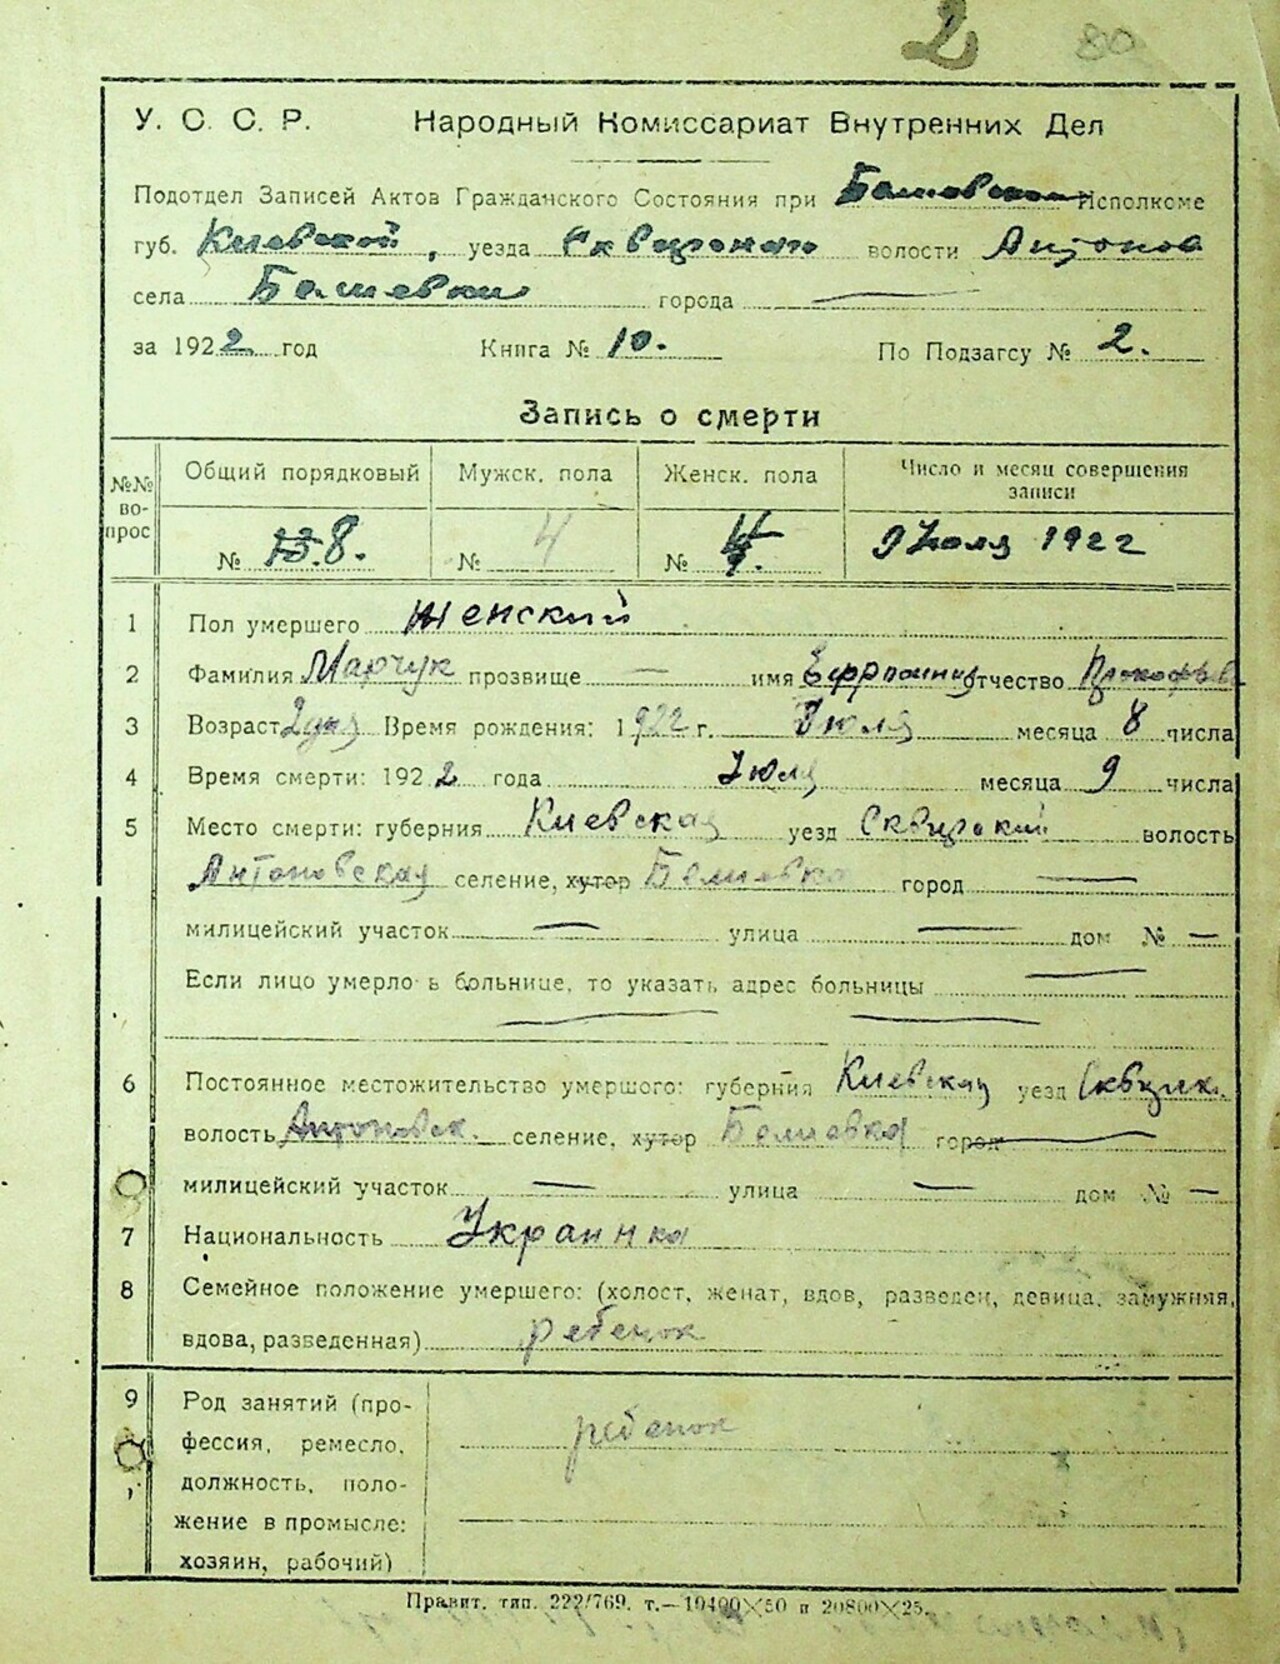 2 80
У. С. С. Р. Народный Комиссариат Внутренних Дел
Подотдел Записей Актов Гражданского Состояния при Исполкоме
губ. Киевской, уезда Сквирского волости Антонов
села Башевки города —
за 1922 год Книга № 10. По Подзагсу № 2.
Запись о смерти
№№ вопрос Общий порядковый Мужск. пола Женск. пола Число и месяц совершения записи
№ 8. № 4 № 4. 9 Июля 1922
1 Пол умершего женский
2 Фамилия Марчук прозвище — имя отчество Прокофьев
3 Возраст 2 дня Время рождения: 1922 г. Июля месяца 8 числа
4 Время смерти: 1922 года Июля месяца 9 числа
5 Место смерти: губерния Киевская уезд Сквирский волость
Антоновская селение, хутор Башевка город —
милицейский участок — улица — дом № —
Если лицо умерло в больнице, то указать адрес больницы —
— —
6 Постоянное местожительство умершого: губерния Киевская уезд Сквирск.
волость Антоновск. селение, хутор Башевка город —
милицейский участок — улица — дом № —
7 Национальность Украинка
8 Семейное положение умершего: (холост, женат, вдов, разведен, девица, замужняя,
вдова, разведенная) ребенок
9 Род занятий (про-
фессия, ремесло, ребенок
должность, поло-
жение в промысле:
хозяин, рабочий)
Правит. тип. 222/769. т.—10400×50 и 20800×25.